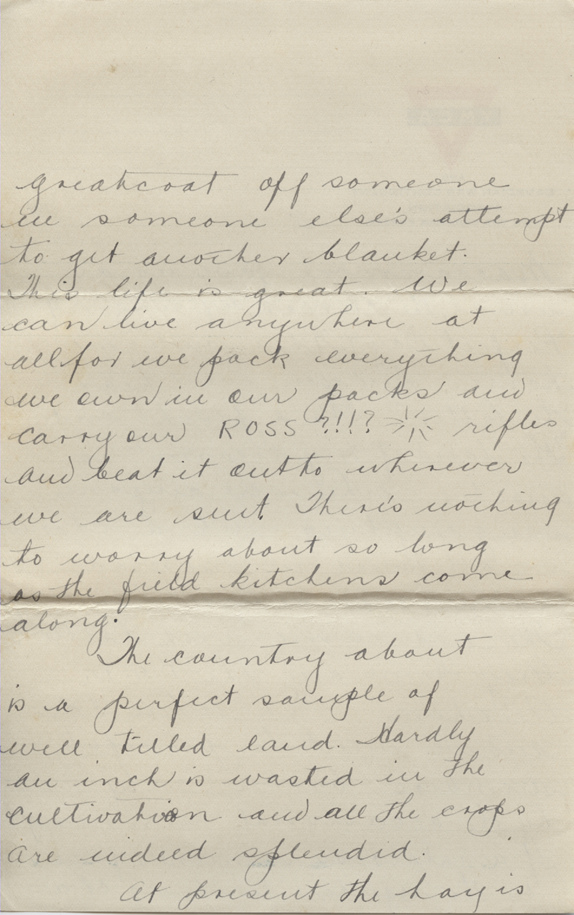 greatcoat off someone
in someone else's attempt
to get another blanket.
This life is great. We
can live anywhere at
all for we pack everything
we own in our packs and
carry our ROSS ?!!? rifles
and beat it out to wherever
we are sent. There's nothing
to worry about so long
as the field kitchens come
along.
The country about
is a perfect sample of
well tilled land. Hardly
an inch is wasted in the
cultivation and all the crops
are indeed splendid.
At present the hay is